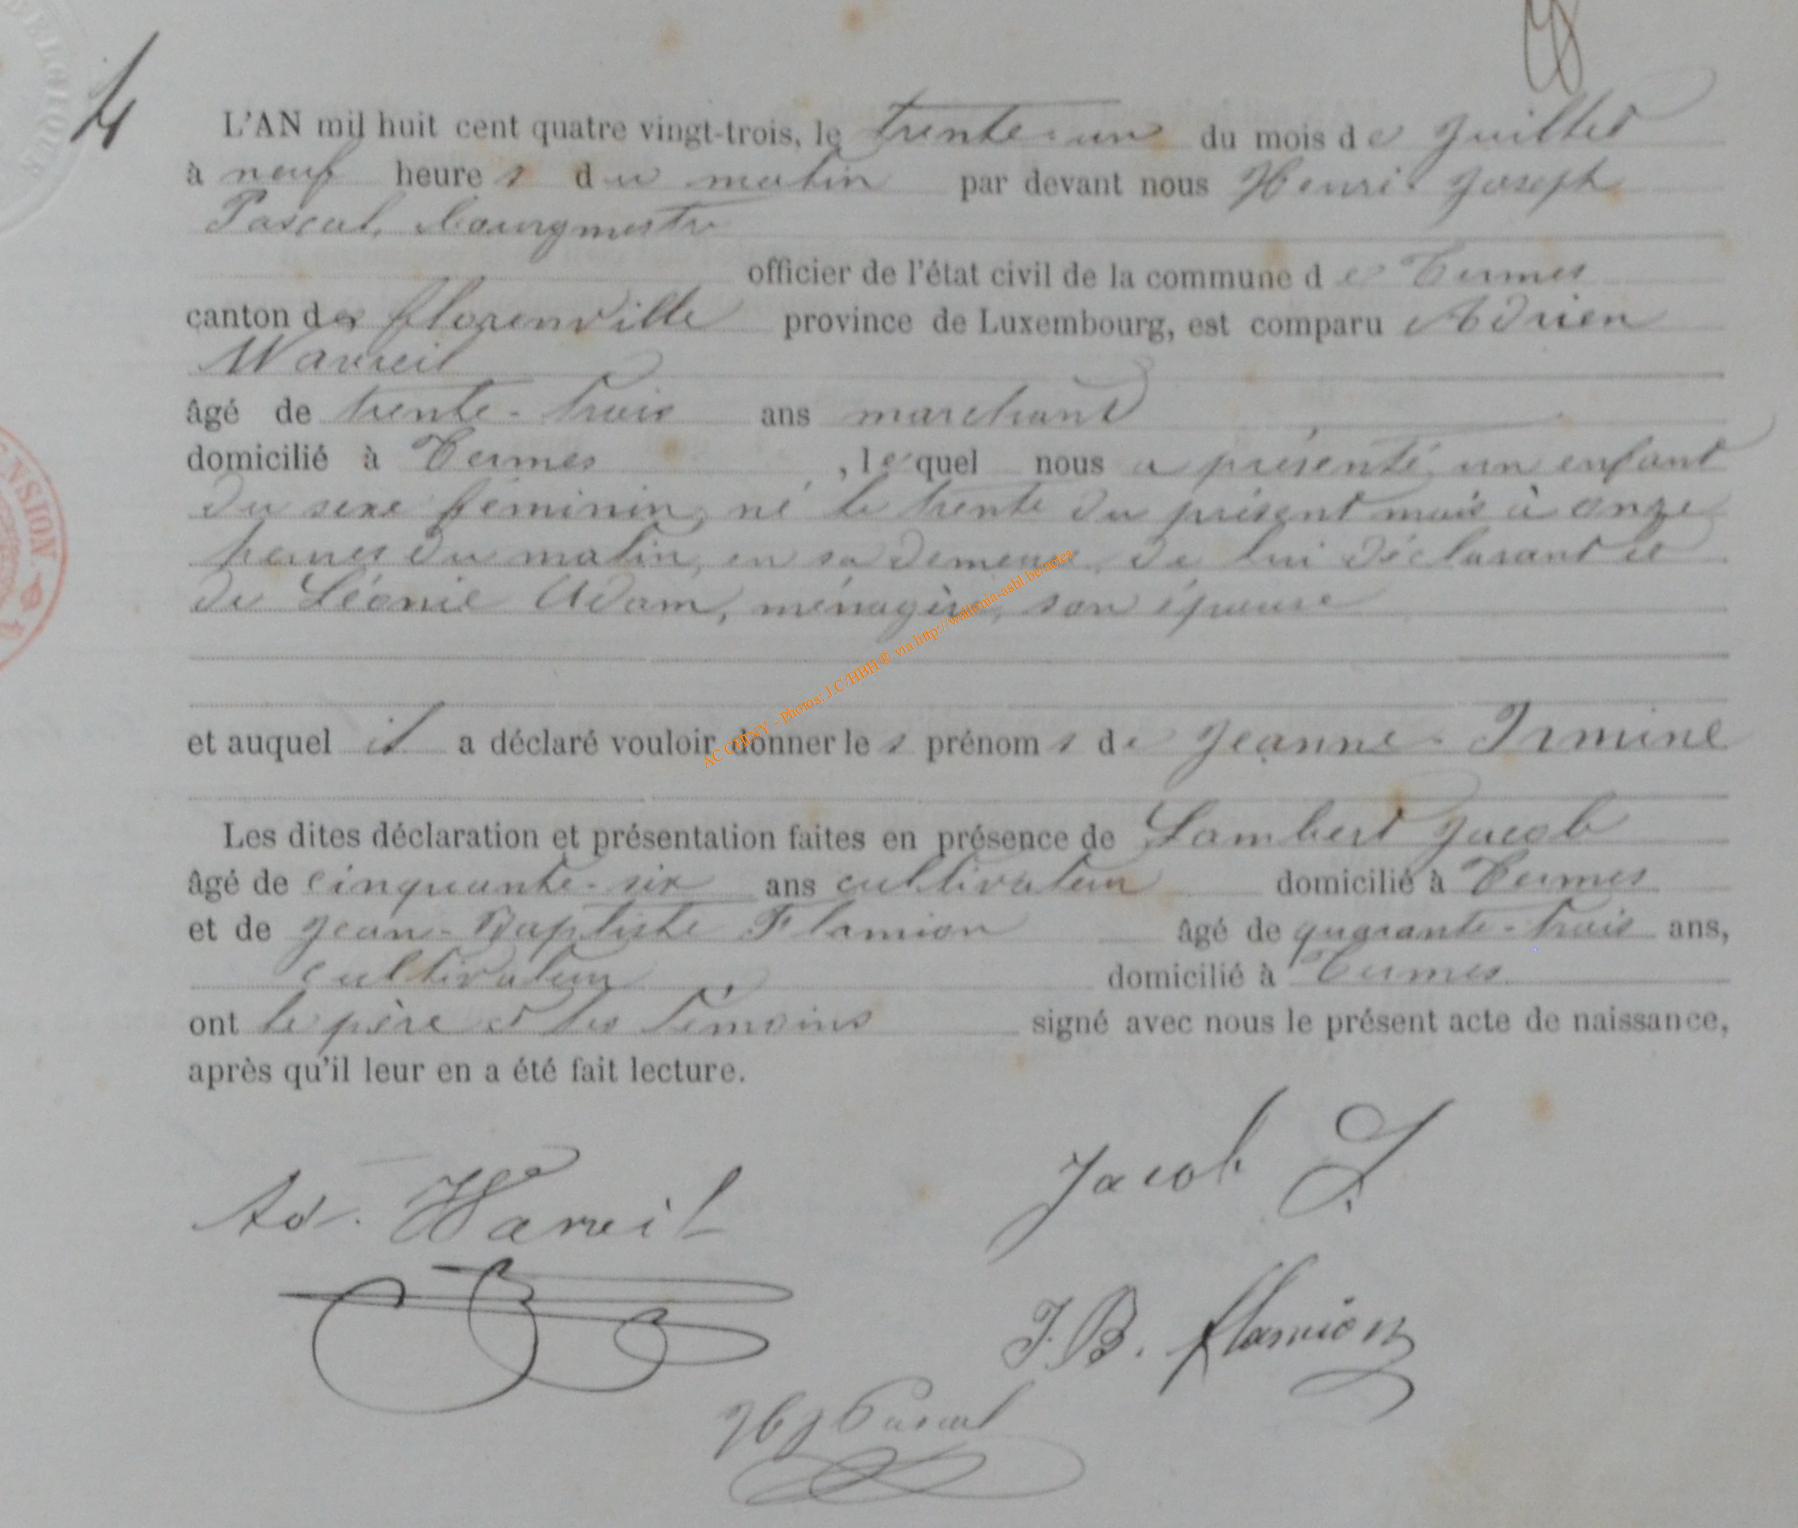 BELGIQUE
4
L'AN mil huit cent quatre vingt-trois, le trente-un du mois de Juillet
à neuf heures du matin par devant nous Henri Joseph
Pascal, bourgmestre
officier de l'état civil de la commune de Termes
canton de florenville province de Luxembourg, est comparu Adrien
Wavreil
âgé de trente-trois ans marchand
domicilié à Termes , lequel nous a présenté un enfant
du sexe féminin, né le trente du présent mois à onze
heures du matin, en sa demeure, de lui déclarant et
de Léonie Adam, ménagère, son épouse
et auquel il a déclaré vouloir donner les prénoms de Jeanne-Irmine
Les dites déclaration et présentation faites en présence de Lambert Jacob
âgé de cinquante-six ans cultivateur domicilié à Termes
et de Jean-Baptiste Flamion âgé de quarante-trois ans,
cultivateur domicilié à Termes
ont le père et les témoins signé avec nous le présent acte de naissance,
après qu'il leur en a été fait lecture.
Ad. Wavreil
Jacob L.
J. B. flamion
H J Pascal
AC CHINY - Photos: J.C/HBH © via http://wallonia-asbl.be/actes